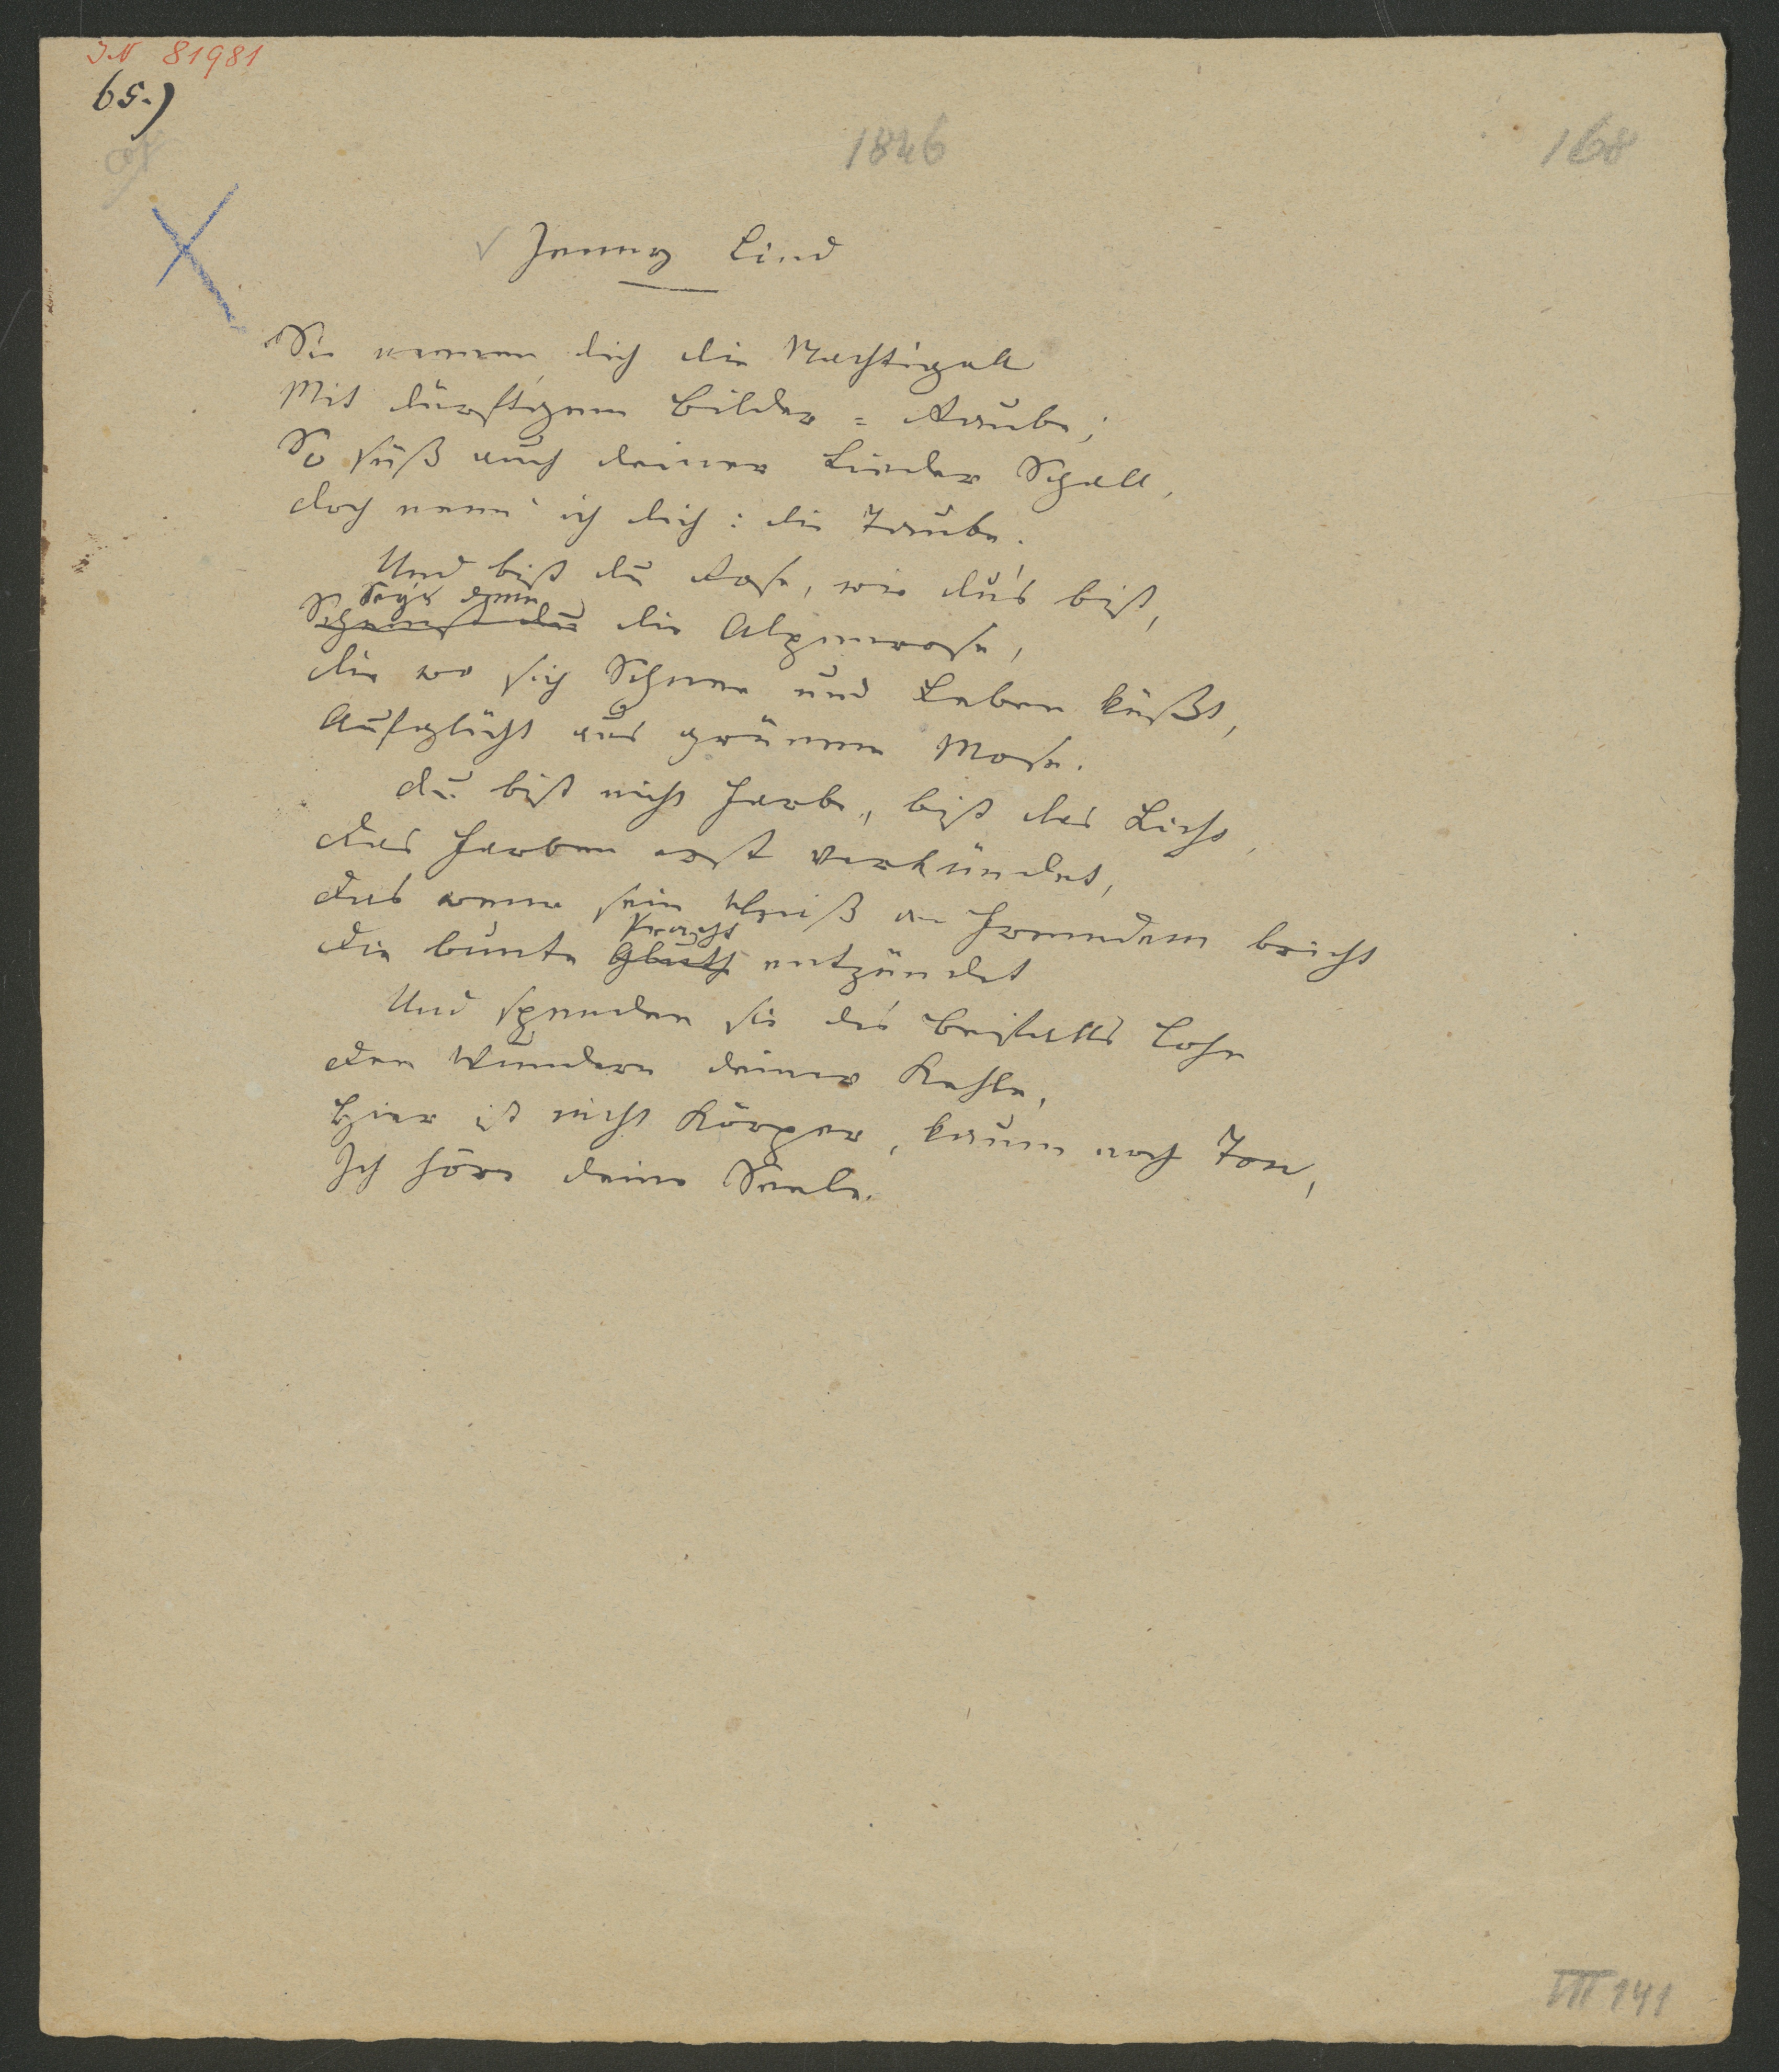 I.N 81981
65.)
1846
168
Jenny Lind
Sie nennen dich die Nachtigall
Mit dürftigem Bilder=Raube;
So süß auch deiner Lieder Schall,
doch nenn' ich dich: die Taube.
Und bist du Rose, wie du's bist,
Seys denn
Scheinst du die Alpenrose,
die wo sich Schnee und Leben küßt,
Aufglüht aus grünem Mose.
du bist nicht Farbe, bist das Licht,
das Farben erst verkündet,
das wenn sein Weiß an Fremdem bricht
Pracht
die bunte Gluth entzündet
Und spenden sie des Beifalls Lohn
den Wundern deiner Kehle,
Hier ist nicht Körper, kaum noch Ton,
Ich höre deine Seele.
III 141